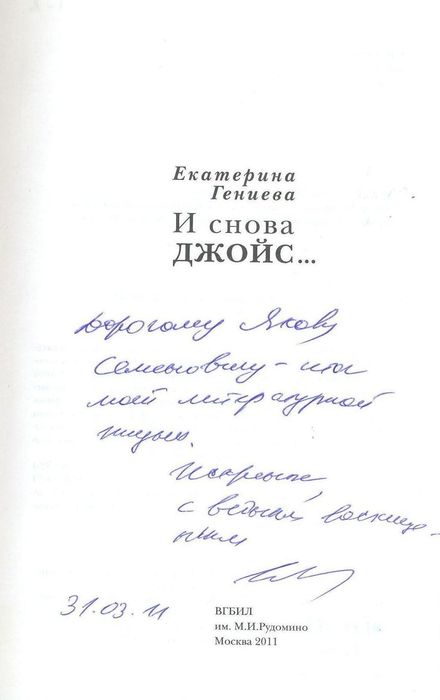 Екатерина
Гениева
И снова
ДЖОЙС...
Дорогому Якову
Семеновичу – итог
моей литературной
жизни.
Искренне,
с вечным восхище-
нием
31.03.11
ВГБИЛ
им. М.И.Рудомино
Москва 2011